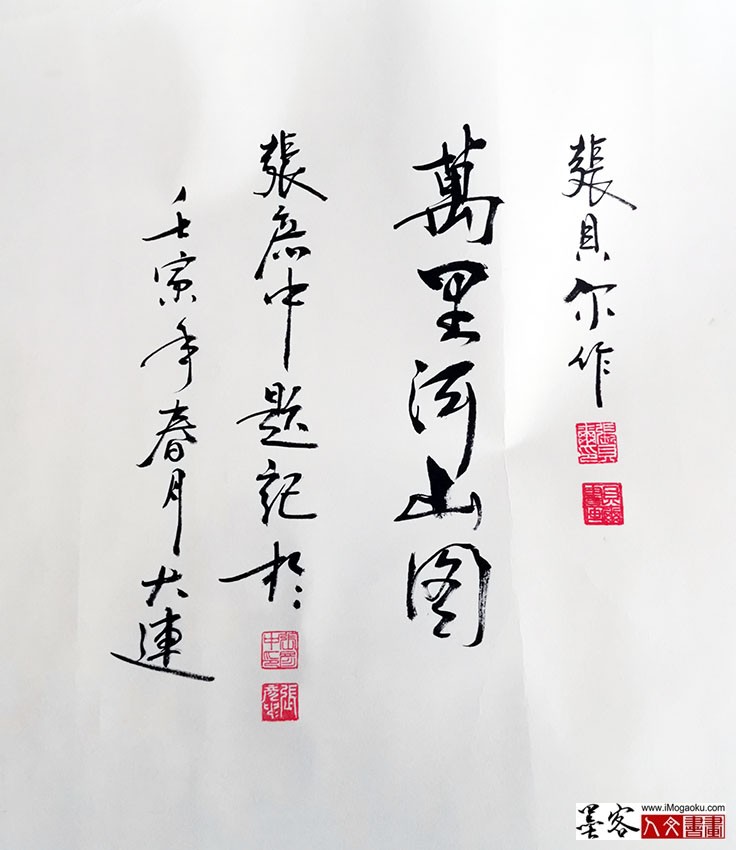 張貝尔作
萬里河山图
張彦中題記於
壬寅年春月大連
墨客
www.iMogaoku.com
人文書畫